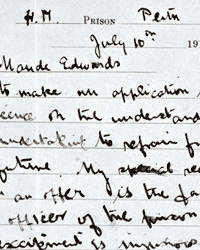 H.M. PRISON Perth
July 10th 191
Maude Edwards
to make an application
licence on the understand
undertaking to refrain f
future. My special rea
an offer is the fa
officer of the prison
excitement is injurious